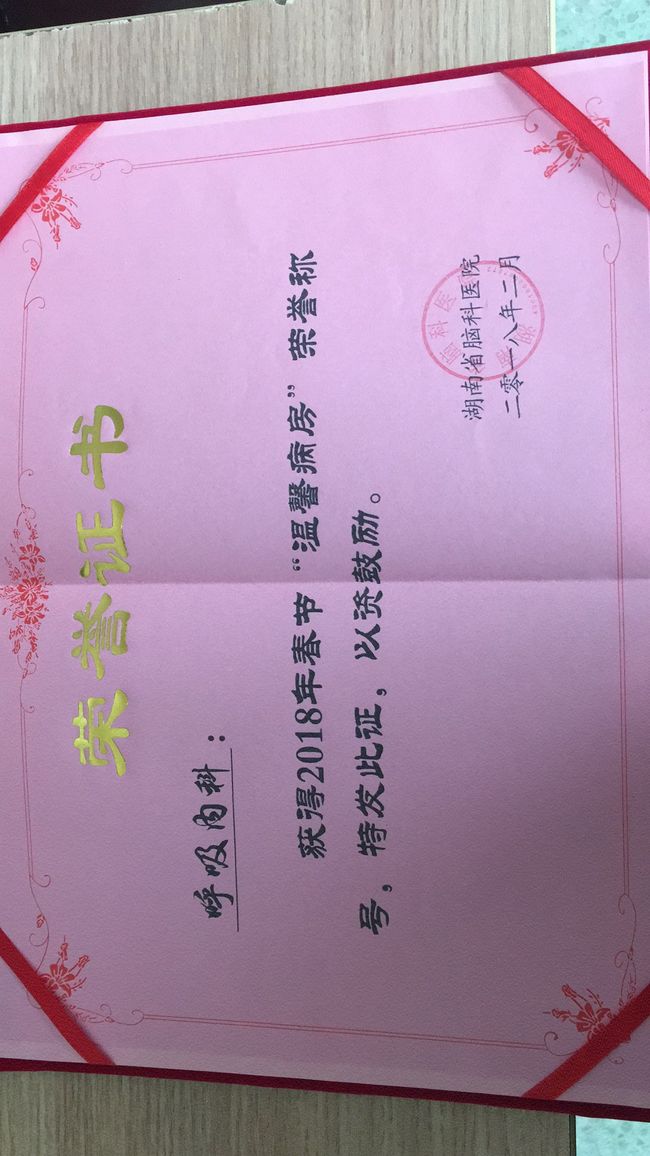 荣誉证书
呼吸内科：
获得2018年春节“温馨病房”荣誉称
号，特发此证，以资鼓励。
湖南省脑科医院
二零一八年二月